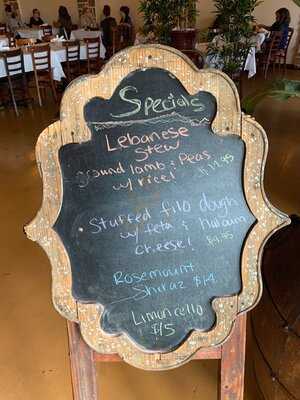 Specials
Lebanese
Stew
Ground lamb & Peas
w/ rice!
Stuffed filo dough
w/ feta & haloumi
cheese! $9.95
Rosemount
Shiraz $14
Limoncello
$15